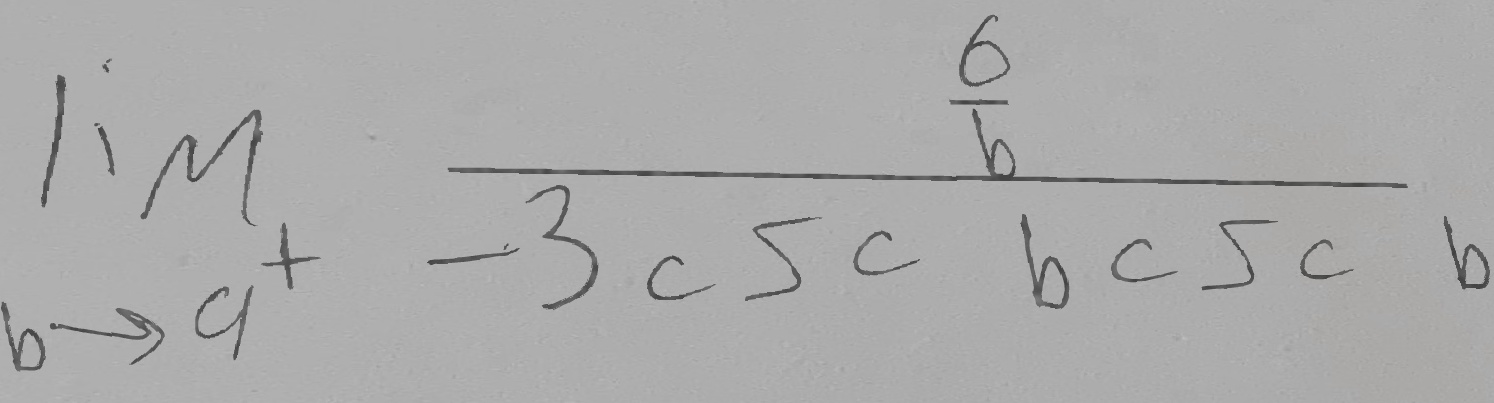 \lim_{b \to 9^+} \frac{\frac{6}{b}}{-3 \csc b \csc b}